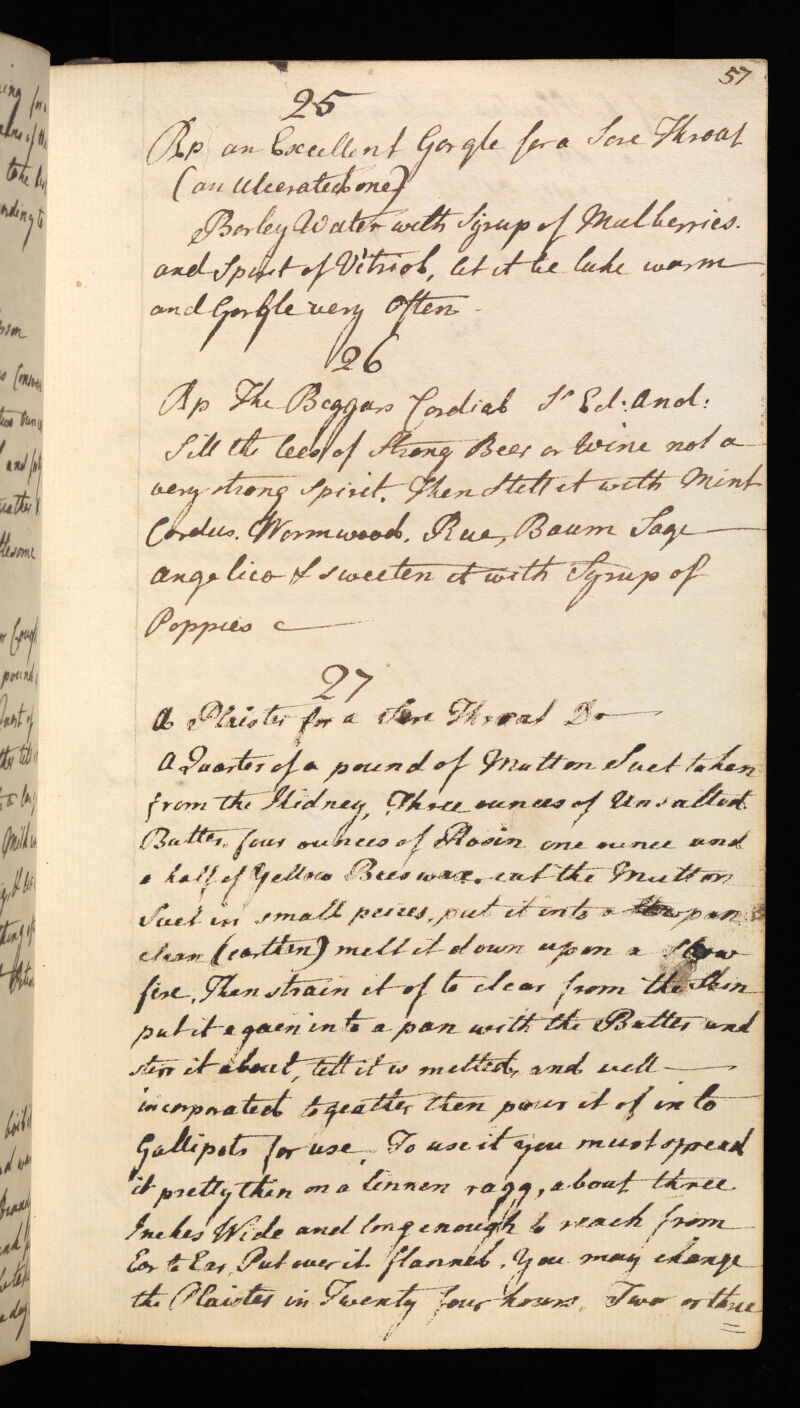 57
25
Rp an Excellent Gorgle for a Sore Throat
(an Ulcerated one)
Barley Water with Syrup of Mulberries.
and Spirit of Vitriol, let it be luke warm
and Gorgle very Often
26
Rp The Beggars Cordial Sr Ed: And:
Still the lees of Strong Beer or Wine not a
very strong Spirit. Then Still it with Mint
Cardus. Wormwood. Rue, Baum Sage
Angelico & sweeten it with Syrup of
Poppies
27
A Plaister for a Sore Throat Do
A Quarter of a pound of Mutton Suet taken
from the Kidney, Three ounces of Unsalted
Butter, four ounces of Rosin one ounce and
a half of Yellow Bees wax. cut the Mutton
Suet in small peices, put it into a pan
clean (earthen) melt it down upon a slow
fire, Then strain it of to clear from the Skin
put it again into a pan with the Butter and
sterr it about, till it is melted, and well
incorporated togeather then pour it of in to
Gallipots for use. To use it you must spread
it pretty thin on a linnen ragg, about three
Inches Wide and long enough to reach from
Ear to Ear, Put over it flannel. You may change
the Plaister in Twenty four hours. Two or three